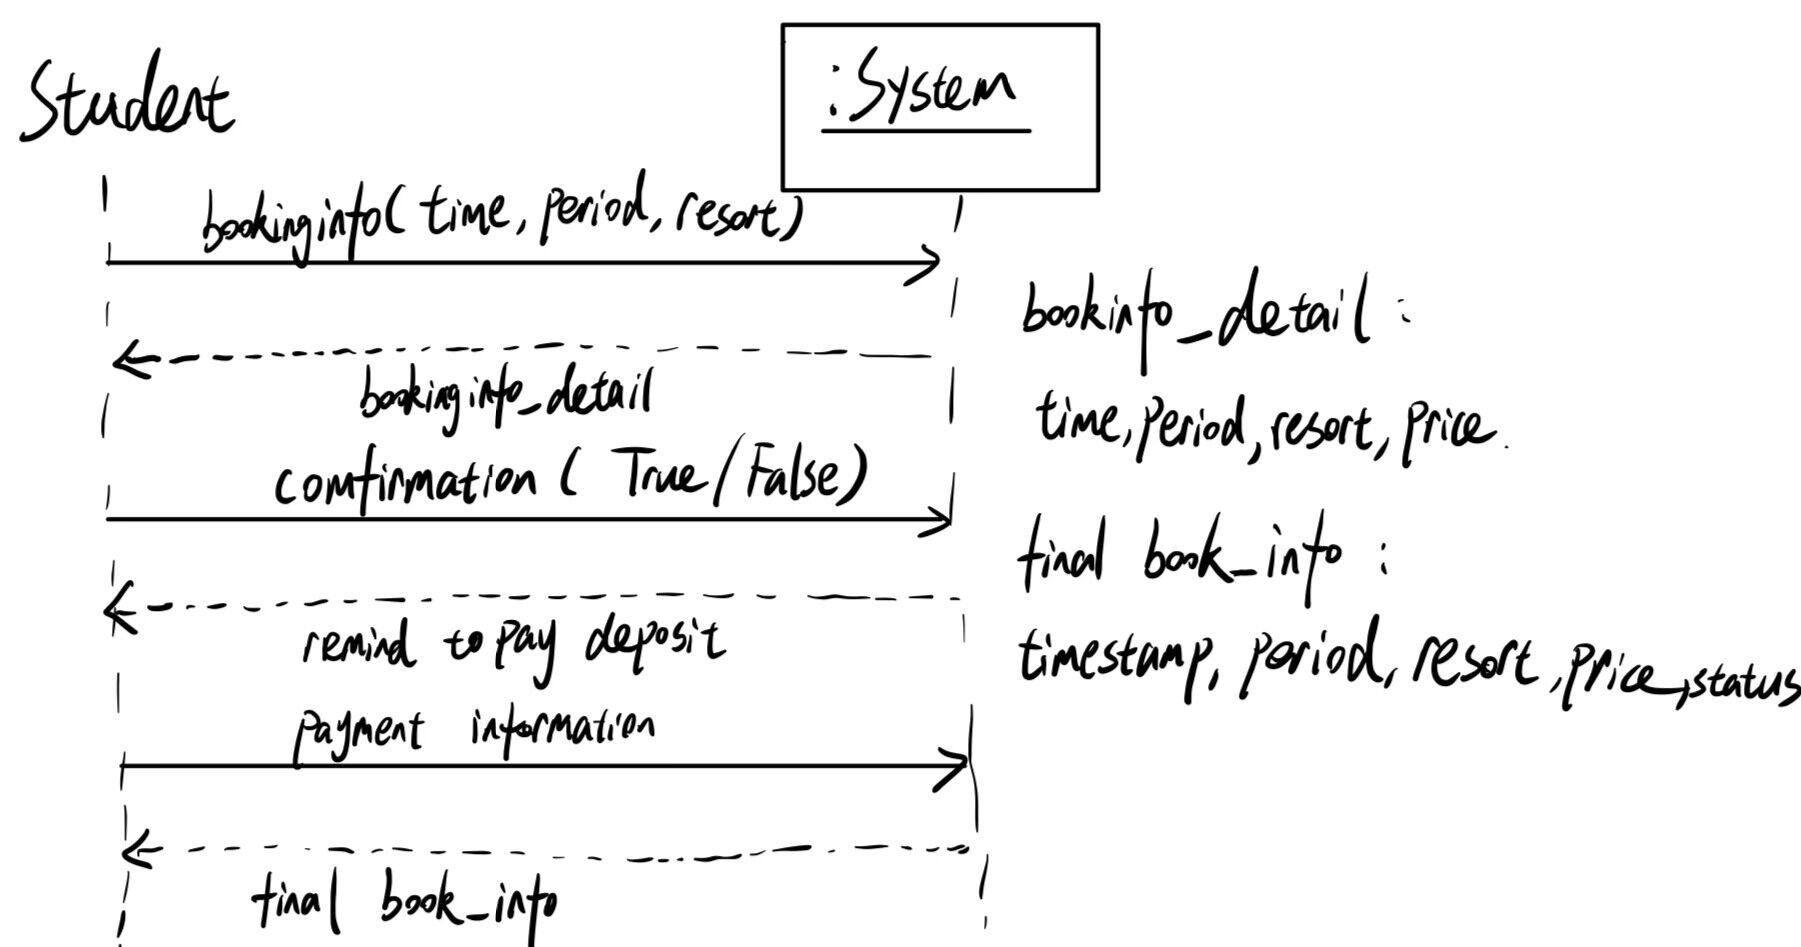 Student
:System
bookinginfo( time, period, resort)
bookinginfo_detail
comfirmation ( True/False)
remind to pay deposit
payment information
final book_info
bookinfo_detail:
time, period, resort, price.
final book_info:
timestamp, period, resort, price, status